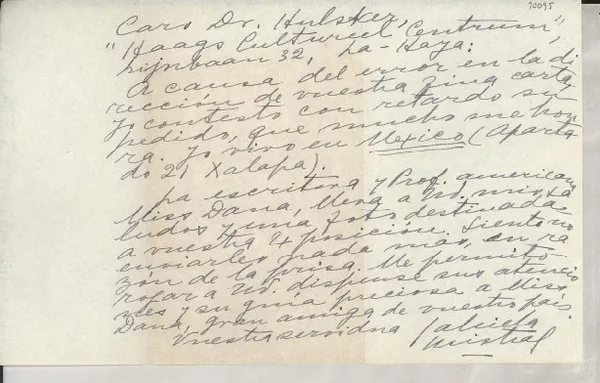 10095
Caro Dr. Hulsker,
"Haags Cultureel Centrum",
Lijnbaan 32, La-Haya:
A causa del error en la di
rección de vuestra fina carta,
yo contesto con retardo su
pedido, que mucho me hon
ra. Yo vivo en Mexico (Aparta
do 21 Xalapa).
La escritora y Prof. americana
Miss Dana, lleva a Ud. mis sa
ludos y una foto destinada
a vuestra Exposición. Siento no
enviarles nada mas, en ra
zón de la prisa. Me permito
rogar a Ud. dispense sus atencio
nes y su guía preciosa a Miss
Dana, gran amiga de vuestro país.
Vuestra servidora Gabriela
Mistral